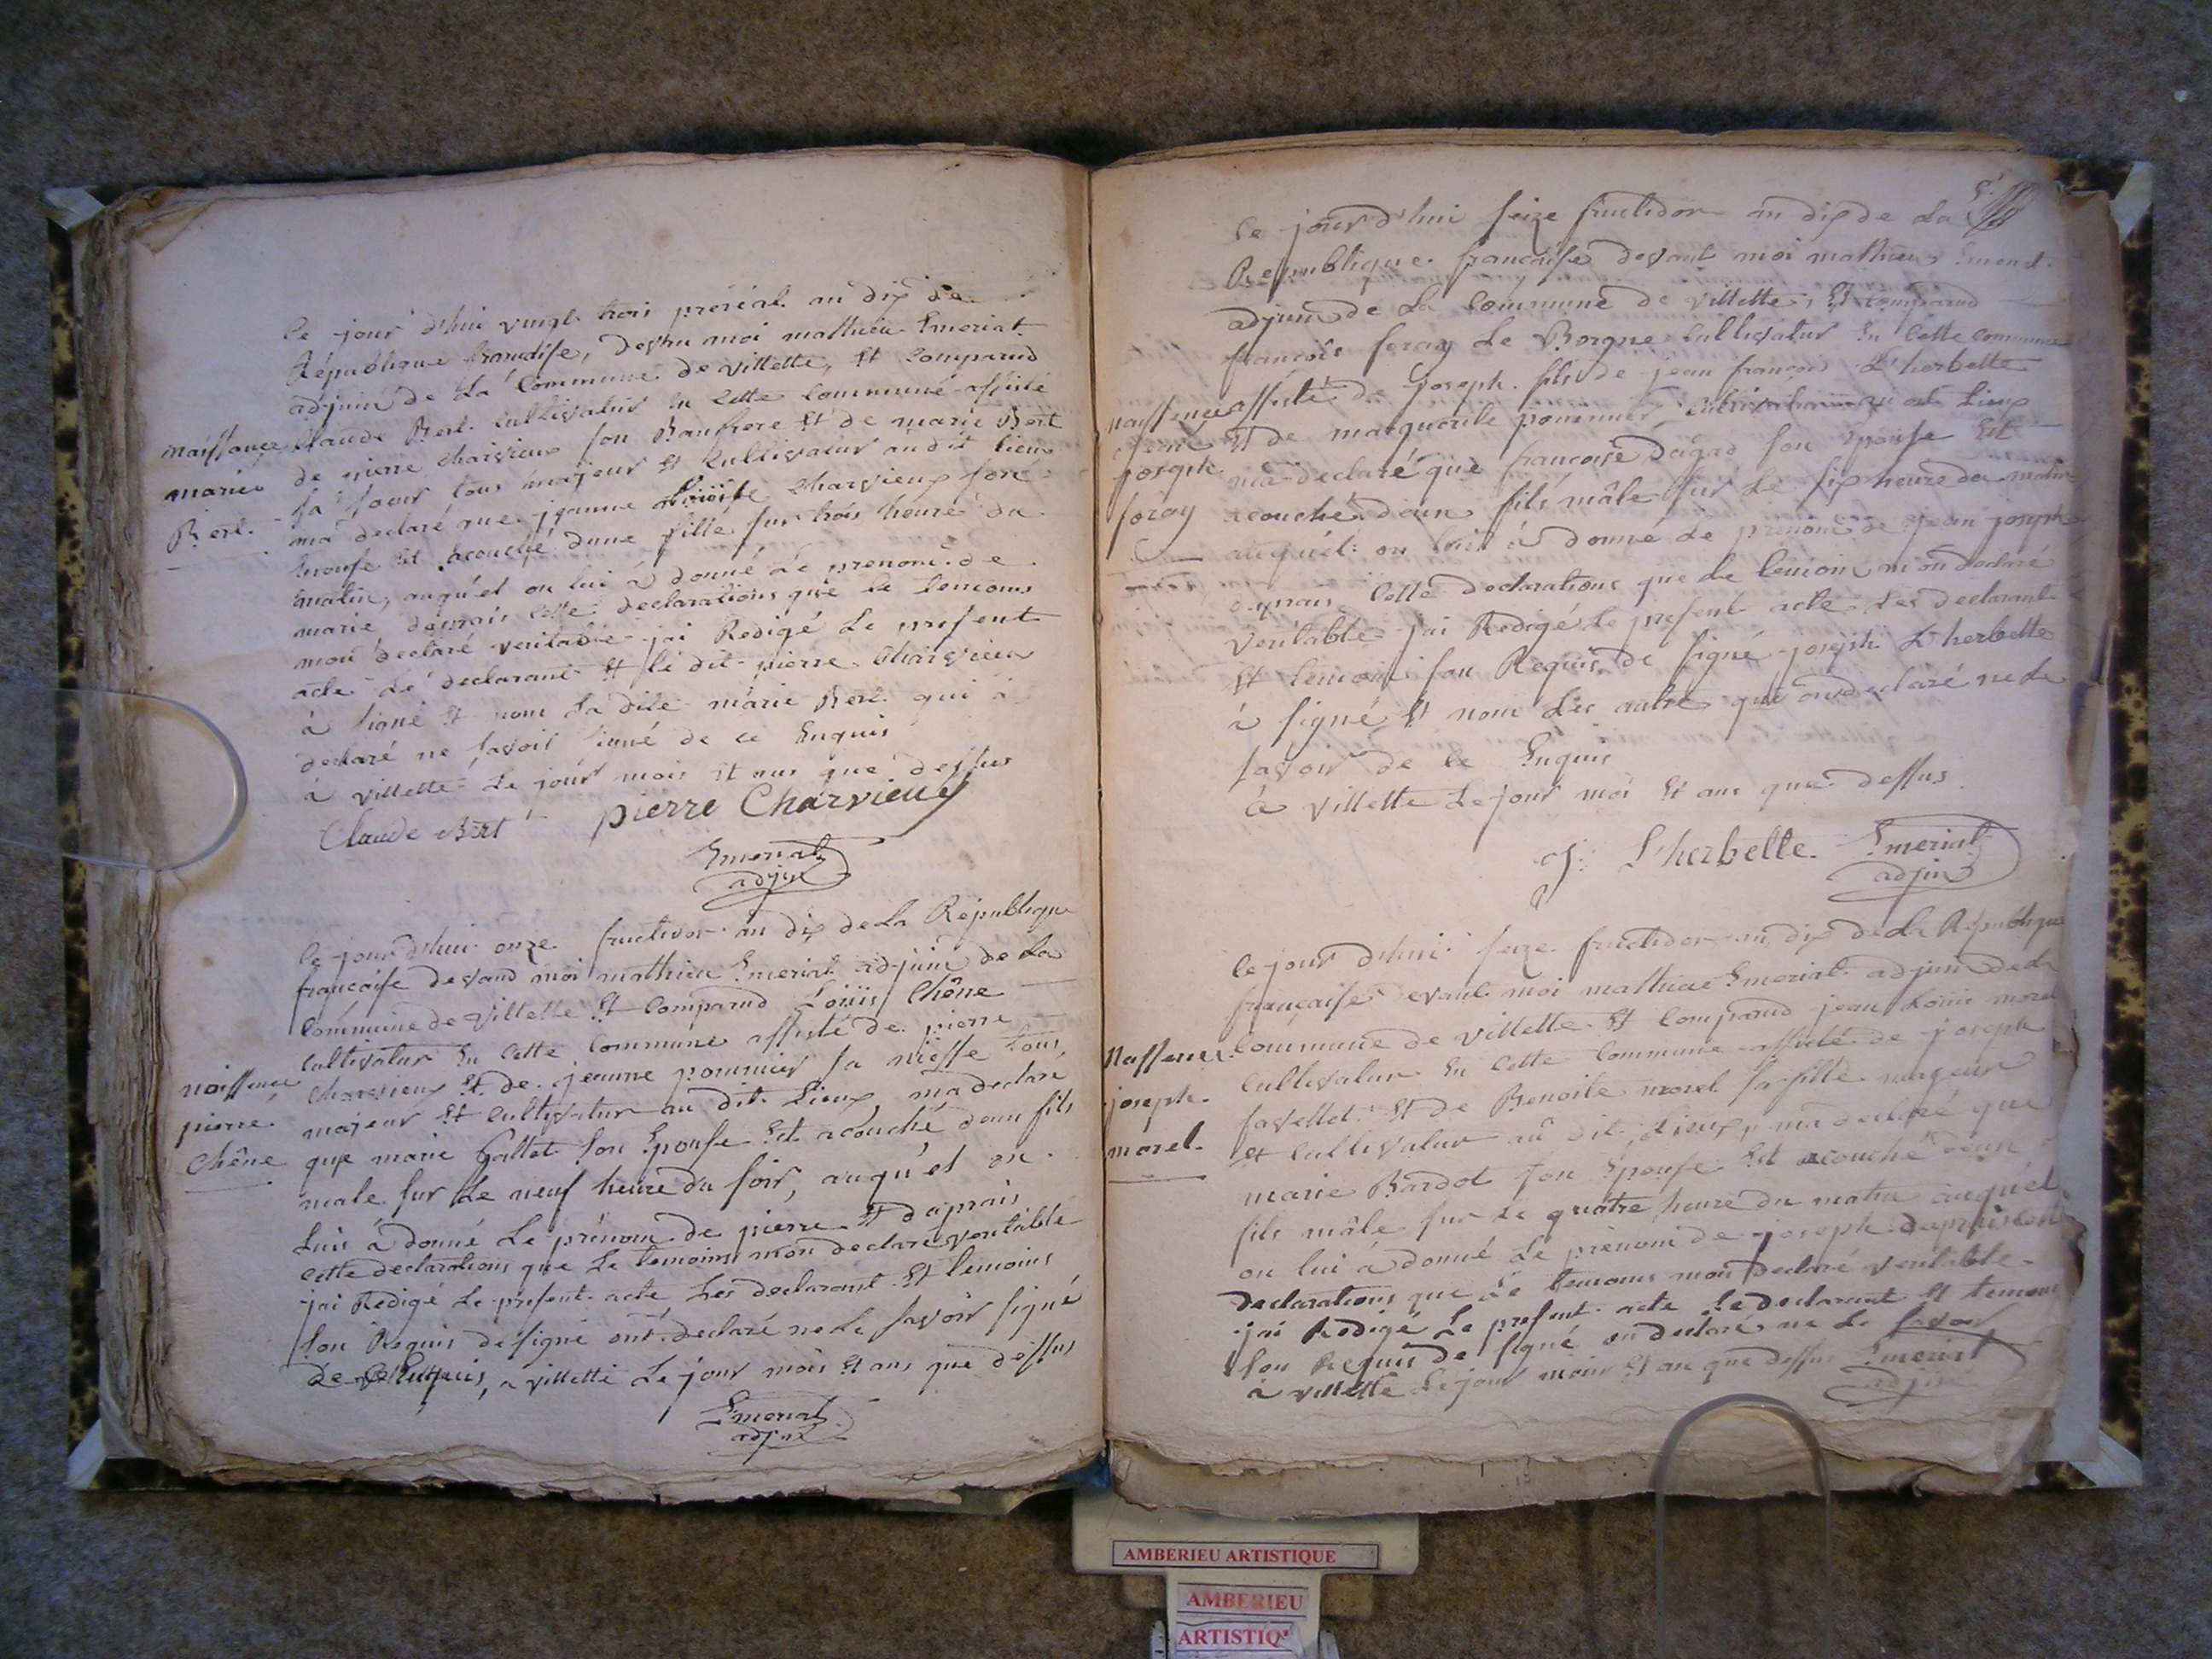 Ce jour d'hui vingt trois preréal an dix de
République francaise, devan moi mathieu Emeriat
adjoin de La Commune de villette, Et Comparud
Claude Bert Cultivatur En Cette Commune assisté
de pierre Charvieux son Baufrere Et de marie Bert
sa soeur tous majeur Et Cultivatur audit lieu
ma declaré que jeanne Charvieux son
Epouse Est acouché dune fille sur trois heure du
matin, auquel on lui à donné Le prenom de
marie daprais Cette declarations que le temoins
mon déclaré veritable jai Redigé Le present
acte Le declarant Et le dit pierre Charvieux
à signé Et non La dite marie Bert qui à
declaré ne savoir signé de ce Enquis
à villette Le jour mois Et ans que dessus
Claude Bert pierre Charvieux
Emeriat
adjin
naissance
marie
Bert
Ce jour d'hui onze fructidor an dix de La République
francaise devand moi mathieu Emeriat adjoin de La
Commune de villette Et Comparud Loüis Chêne
Cultivatur En Cette Commune assisté de pierre
Charvieux Et de jeanne pommier sa niesse tous
majeur Et Cultivatur au dit Lieux, ma declaré
que marie Gallet son Epouse Est acouché daun fils
male sur Le neuf heure du soir, auqu'el on
Lui à donné Le prénom de pierre Et daprais
Cette declarations que Le temoins mon declaré veritable
jai Redigé Le present acte Les declarant Et temoins
son Requis de signé ont declaré ne Le savoir signé
de Enquis, a villette Le jour mois Et ans que dessus
Emeriat
adjin
naissance
pierre
Chêne
Ce jour d'hui seize fructidor an dix de La
Republique francaise devant moi mathieu
adjoin de La Commune de villette, Et comparud
françois feray Le Borgne Cultivatur En Cette Commune
assisté de joseph fils de jean françois L'herbette
Et de marguerite pommier, Lieux
ma declaré que francoise Dagad son Epouse Est
acouché daun fils mâle sur Le six heure du matin
auquél on lui à donné Le prenom de jean joseph
aprais Cette declarations que Le temoin m'on declaré
veritable jai Redigé Le present acte Les declarant
Et temoin son Requis de signé joseph L'herbette
à signé Et non Les autre qui on declaré ne Le
savoir de ce Enquis
à villette Le jour moi Et ans que dessus
j. L'herbette Emeriat
adjin
naissence
joseph
feray
Ce jour d'hui seize fructidor an dix de La République
française devant moi mathieu Emeriat adjoin de La
Commune de villette Et Comparud jean Loüis morel
Cultivatur En Cette Commune assisté de joseph
favellet Et de Benoite morel sa fille majeur
Et Cultivatur au dit Lieux, ma declaré que
marie Bardot son Epouse Est acouché daun
fils mâle sur Le quatre heure du matin auquél
on lui à donné Le prénom de joseph daprais Cette
declarations que Le temoins mon declaré veritable
jai Redigé Le present acte Le declarant Et temoins
son Requis de signé on declaré ne Le savoir
à villette Le jour mois Et an que dessus Emeriat
adjin
Naissence
joseph
morel
AMBERIEU ARTISTIQUE
AMBERIEU
ARTISTIQ